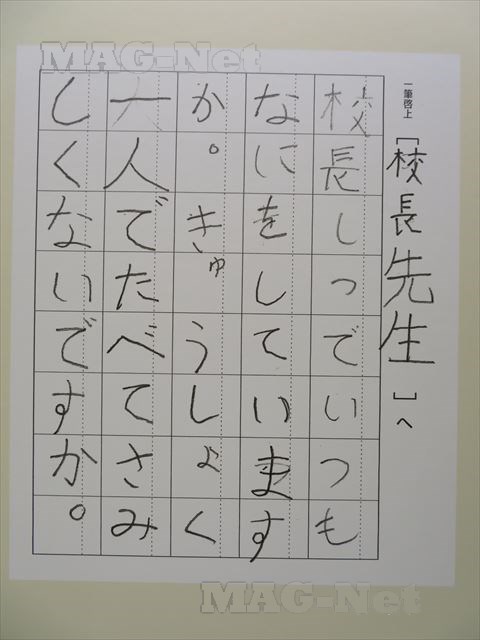 MAG-Net
一筆啓上
「校長先生」へ
校長しつでいつも
なにをしています
か。きゅうしょく
一人でたべてさみ
しくないですか。
MAG-Net